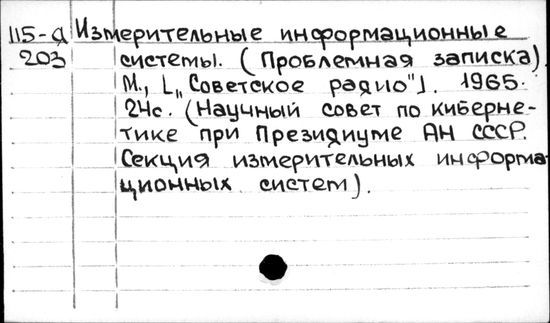 115-д Измерительные информационные
203 системы. (Проблемная записка)
М., [„Советское радио"]. 1965.
24с. (Научный совет по киберне-
тике при Президиуме АН СССР.
Секция измерительных информа-
ционных систем).